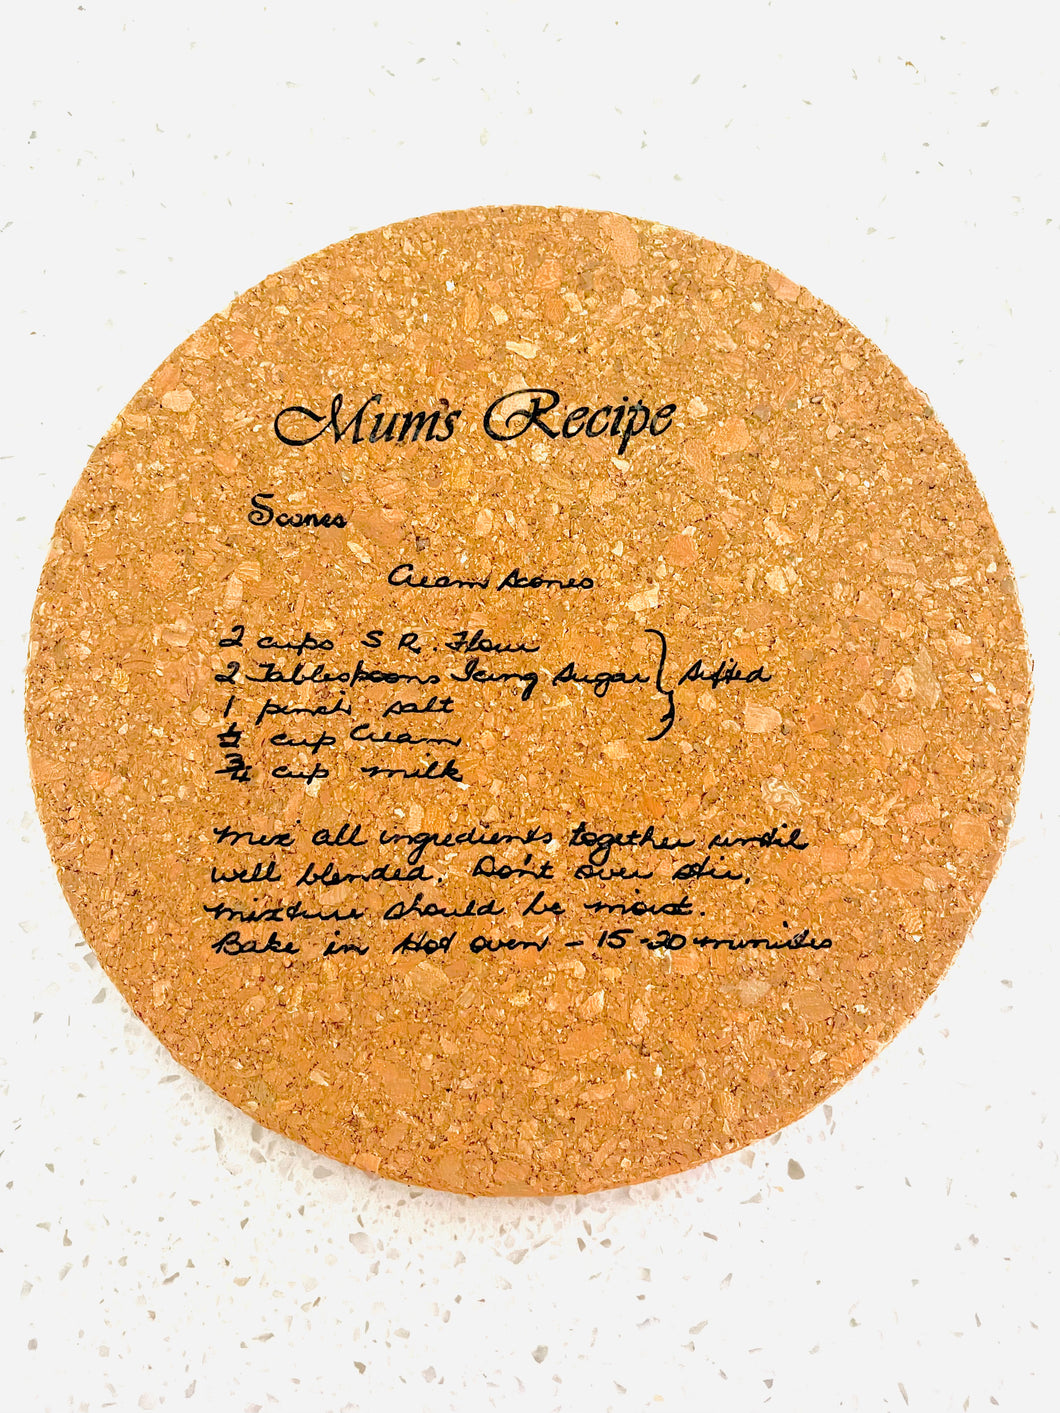 Mum's Recipe
Scones
Cream Scones
2 cups S R. Flour
2 Tablespoons Icing Sugar } Sifted
1 pinch salt
½ cup Cream
¾ cup milk
Mix all ingredients together until
well blended. Don't over stir,
mixture should be moist.
Bake in Hot oven - 15-20 minutes